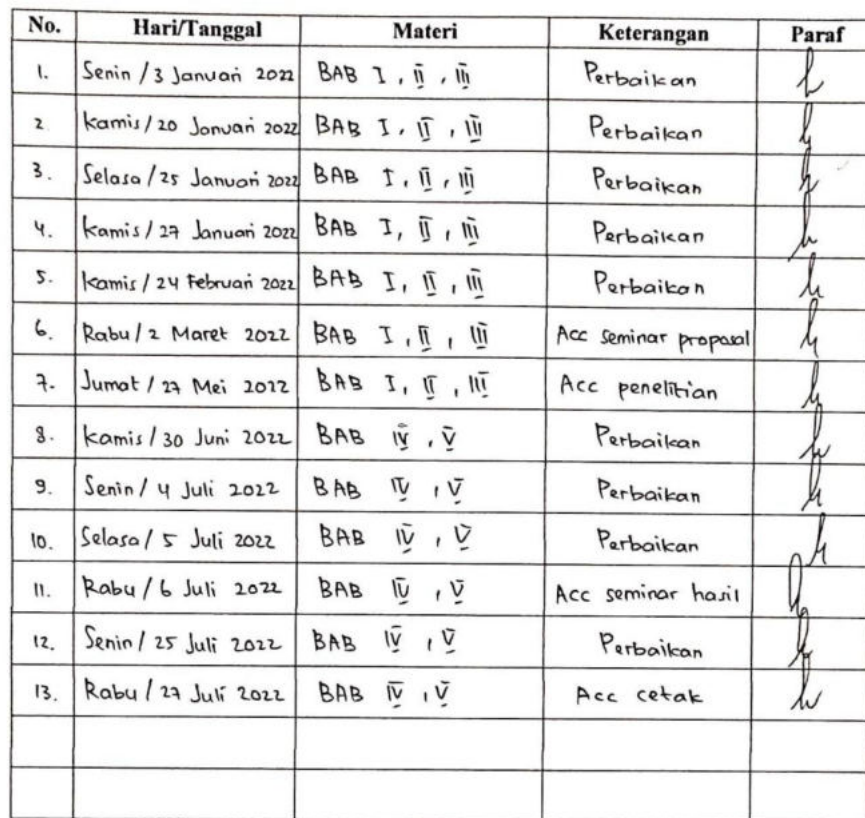 No. Hari/Tanggal Materi Keterangan Paraf
1. Senin / 3 Januari 2022 BAB I, II, III Perbaikan
2. Kamis / 20 Januari 2022 BAB I, II, III Perbaikan
3. Selasa / 25 Januari 2022 BAB I, II, III Perbaikan
4. Kamis / 27 Januari 2022 BAB I, II, III Perbaikan
5. Kamis / 24 Februari 2022 BAB I, II, III Perbaikan
6. Rabu / 2 Maret 2022 BAB I, II, III Acc seminar proposal
7. Jumat / 27 Mei 2022 BAB I, II, III Acc penelitian
8. Kamis / 30 Juni 2022 BAB IV, V Perbaikan
9. Senin / 4 Juli 2022 BAB IV, V Perbaikan
10. Selasa / 5 Juli 2022 BAB IV, V Perbaikan
11. Rabu / 6 Juli 2022 BAB IV, V Acc seminar hasil
12. Senin / 25 Juli 2022 BAB IV, V Perbaikan
13. Rabu / 27 Juli 2022 BAB IV, V Acc cetak